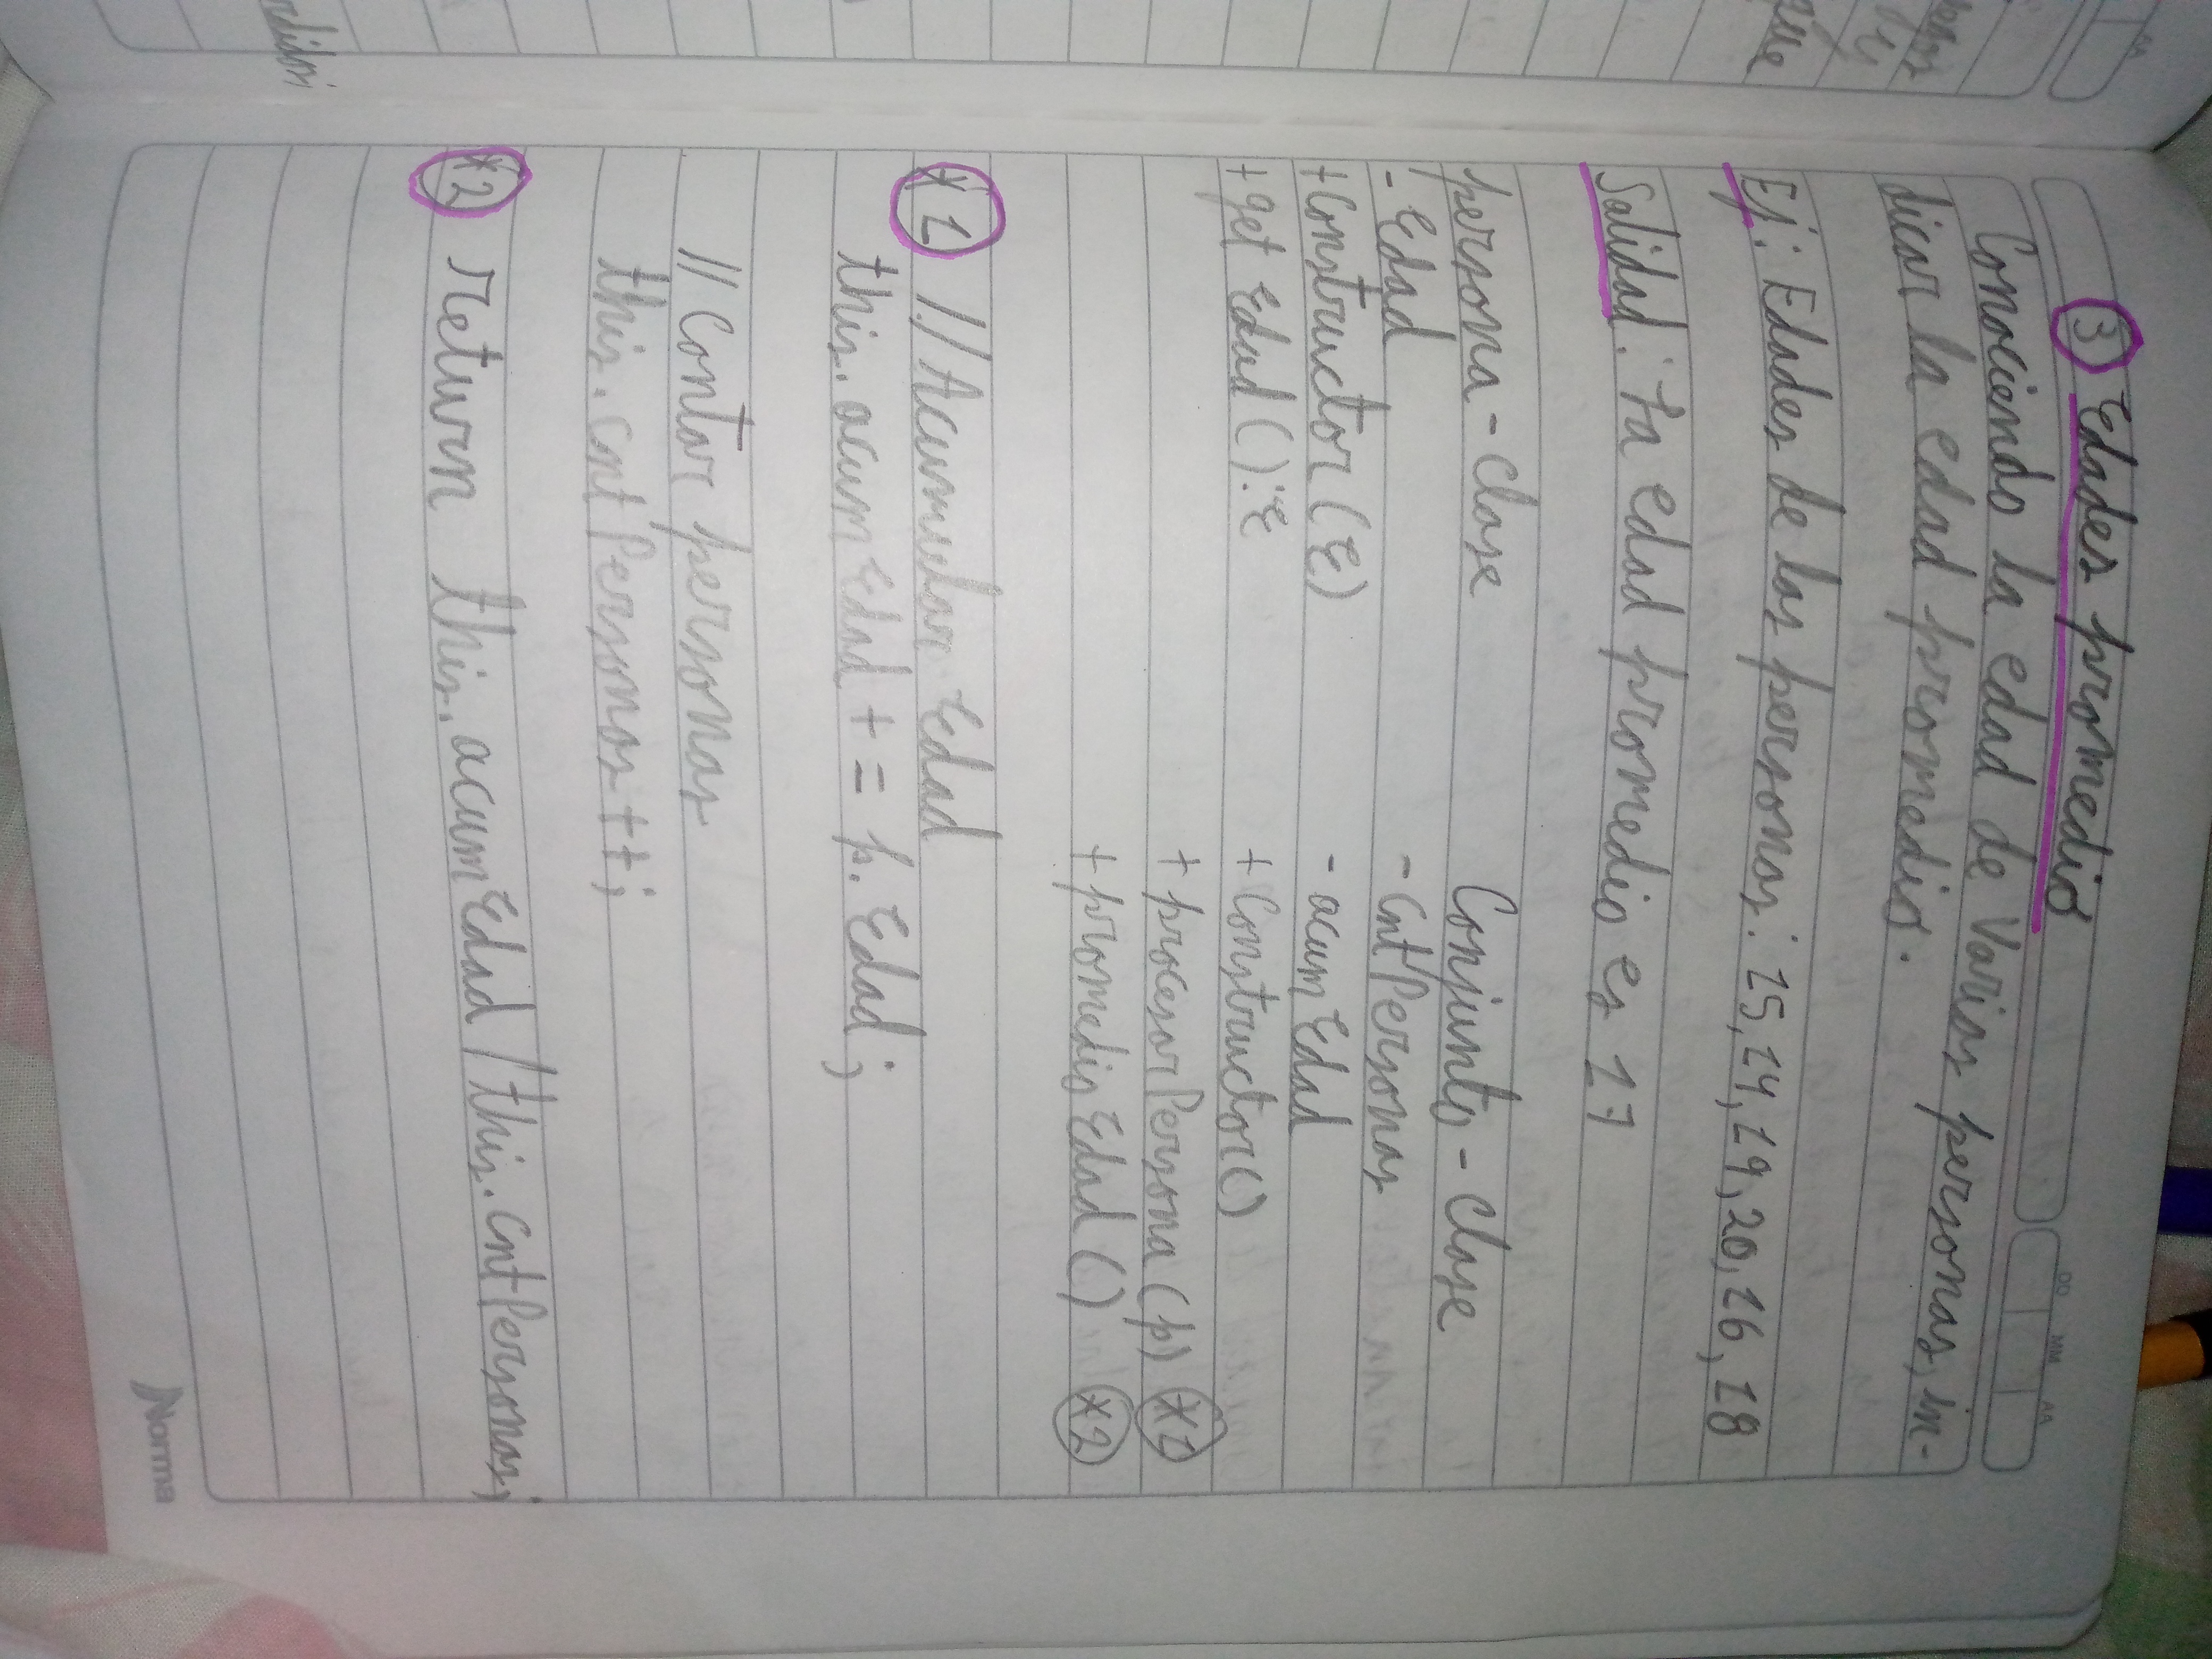 AA
DD MM AA
③ Edades promedio
Conociendo la edad de Varias personas, in-
dicar la edad promedio.
Ej: Edades de las personas: 15, 14, 19, 20, 16, 18
Salidad: La edad promedio es 17
persona - Clase
- Edad
+ Constructor (E)
+ get Edad ( ): E
Conjunto - Clase
- CntPersonas
- acumEdad
+ Constructor ()
+ procesarPersona (p) *1
+ promedioEdad () *2
*1 // Acumular Edad
this.acumEdad + = p. Edad;
// Contar personas
this.cntPersonas ++;
*2 return this.acumEdad / this.CntPersonas;
que
y
Norma